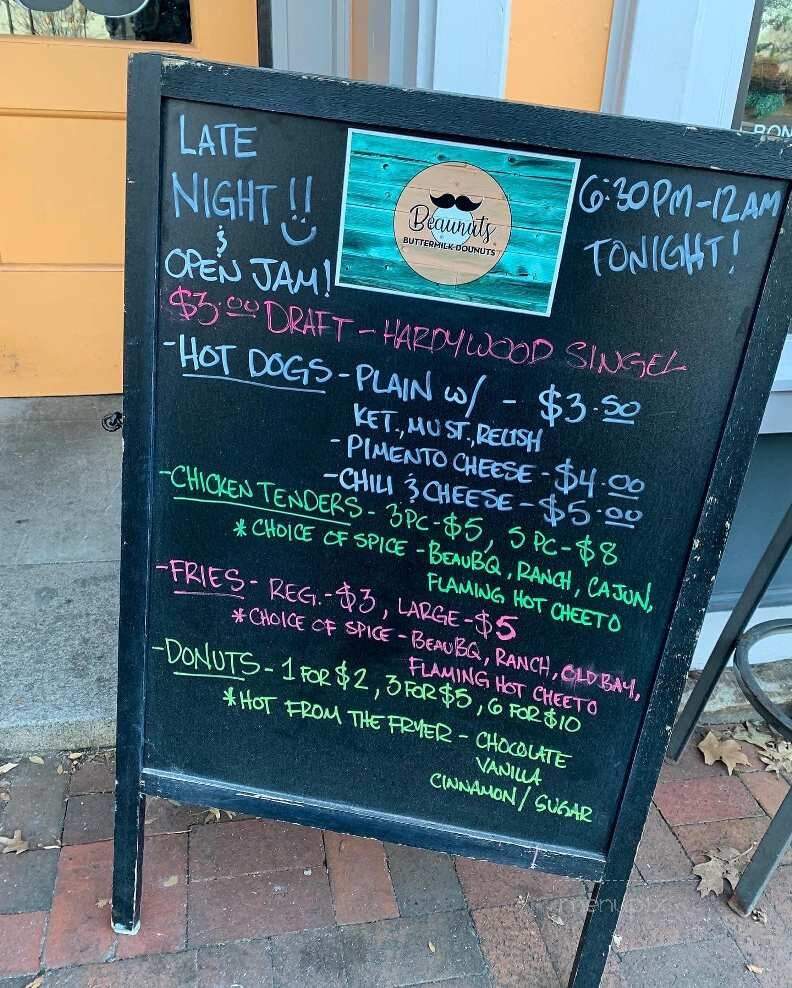 LATE
NIGHT!!
&
OPEN JAM!
Beaunuts
BUTTERMILK DOUNUTS
6:30PM-12AM
TONIGHT!
$3.00 DRAFT - HARDYWOOD SINGEL
-HOT DOGS - PLAIN w/ - $3.50
KET., MUST., RELISH
- PIMENTO CHEESE - $4.00
-CHILI & CHEESE - $5.00
-CHICKEN TENDERS - 3PC-$5, 5PC-$8
* CHOICE OF SPICE - BEAUBQ, RANCH, CAJUN,
FLAMING HOT CHEETO
-FRIES - REG.-$3, LARGE-$5
* CHOICE OF SPICE - BEAUBQ, RANCH, OLD BAY,
FLAMING HOT CHEETO
-DONUTS - 1 FOR $2, 3 FOR $5, 6 FOR $10
* HOT FROM THE FRYER - CHOCOLATE
VANILLA
CINNAMON/SUGAR
BON